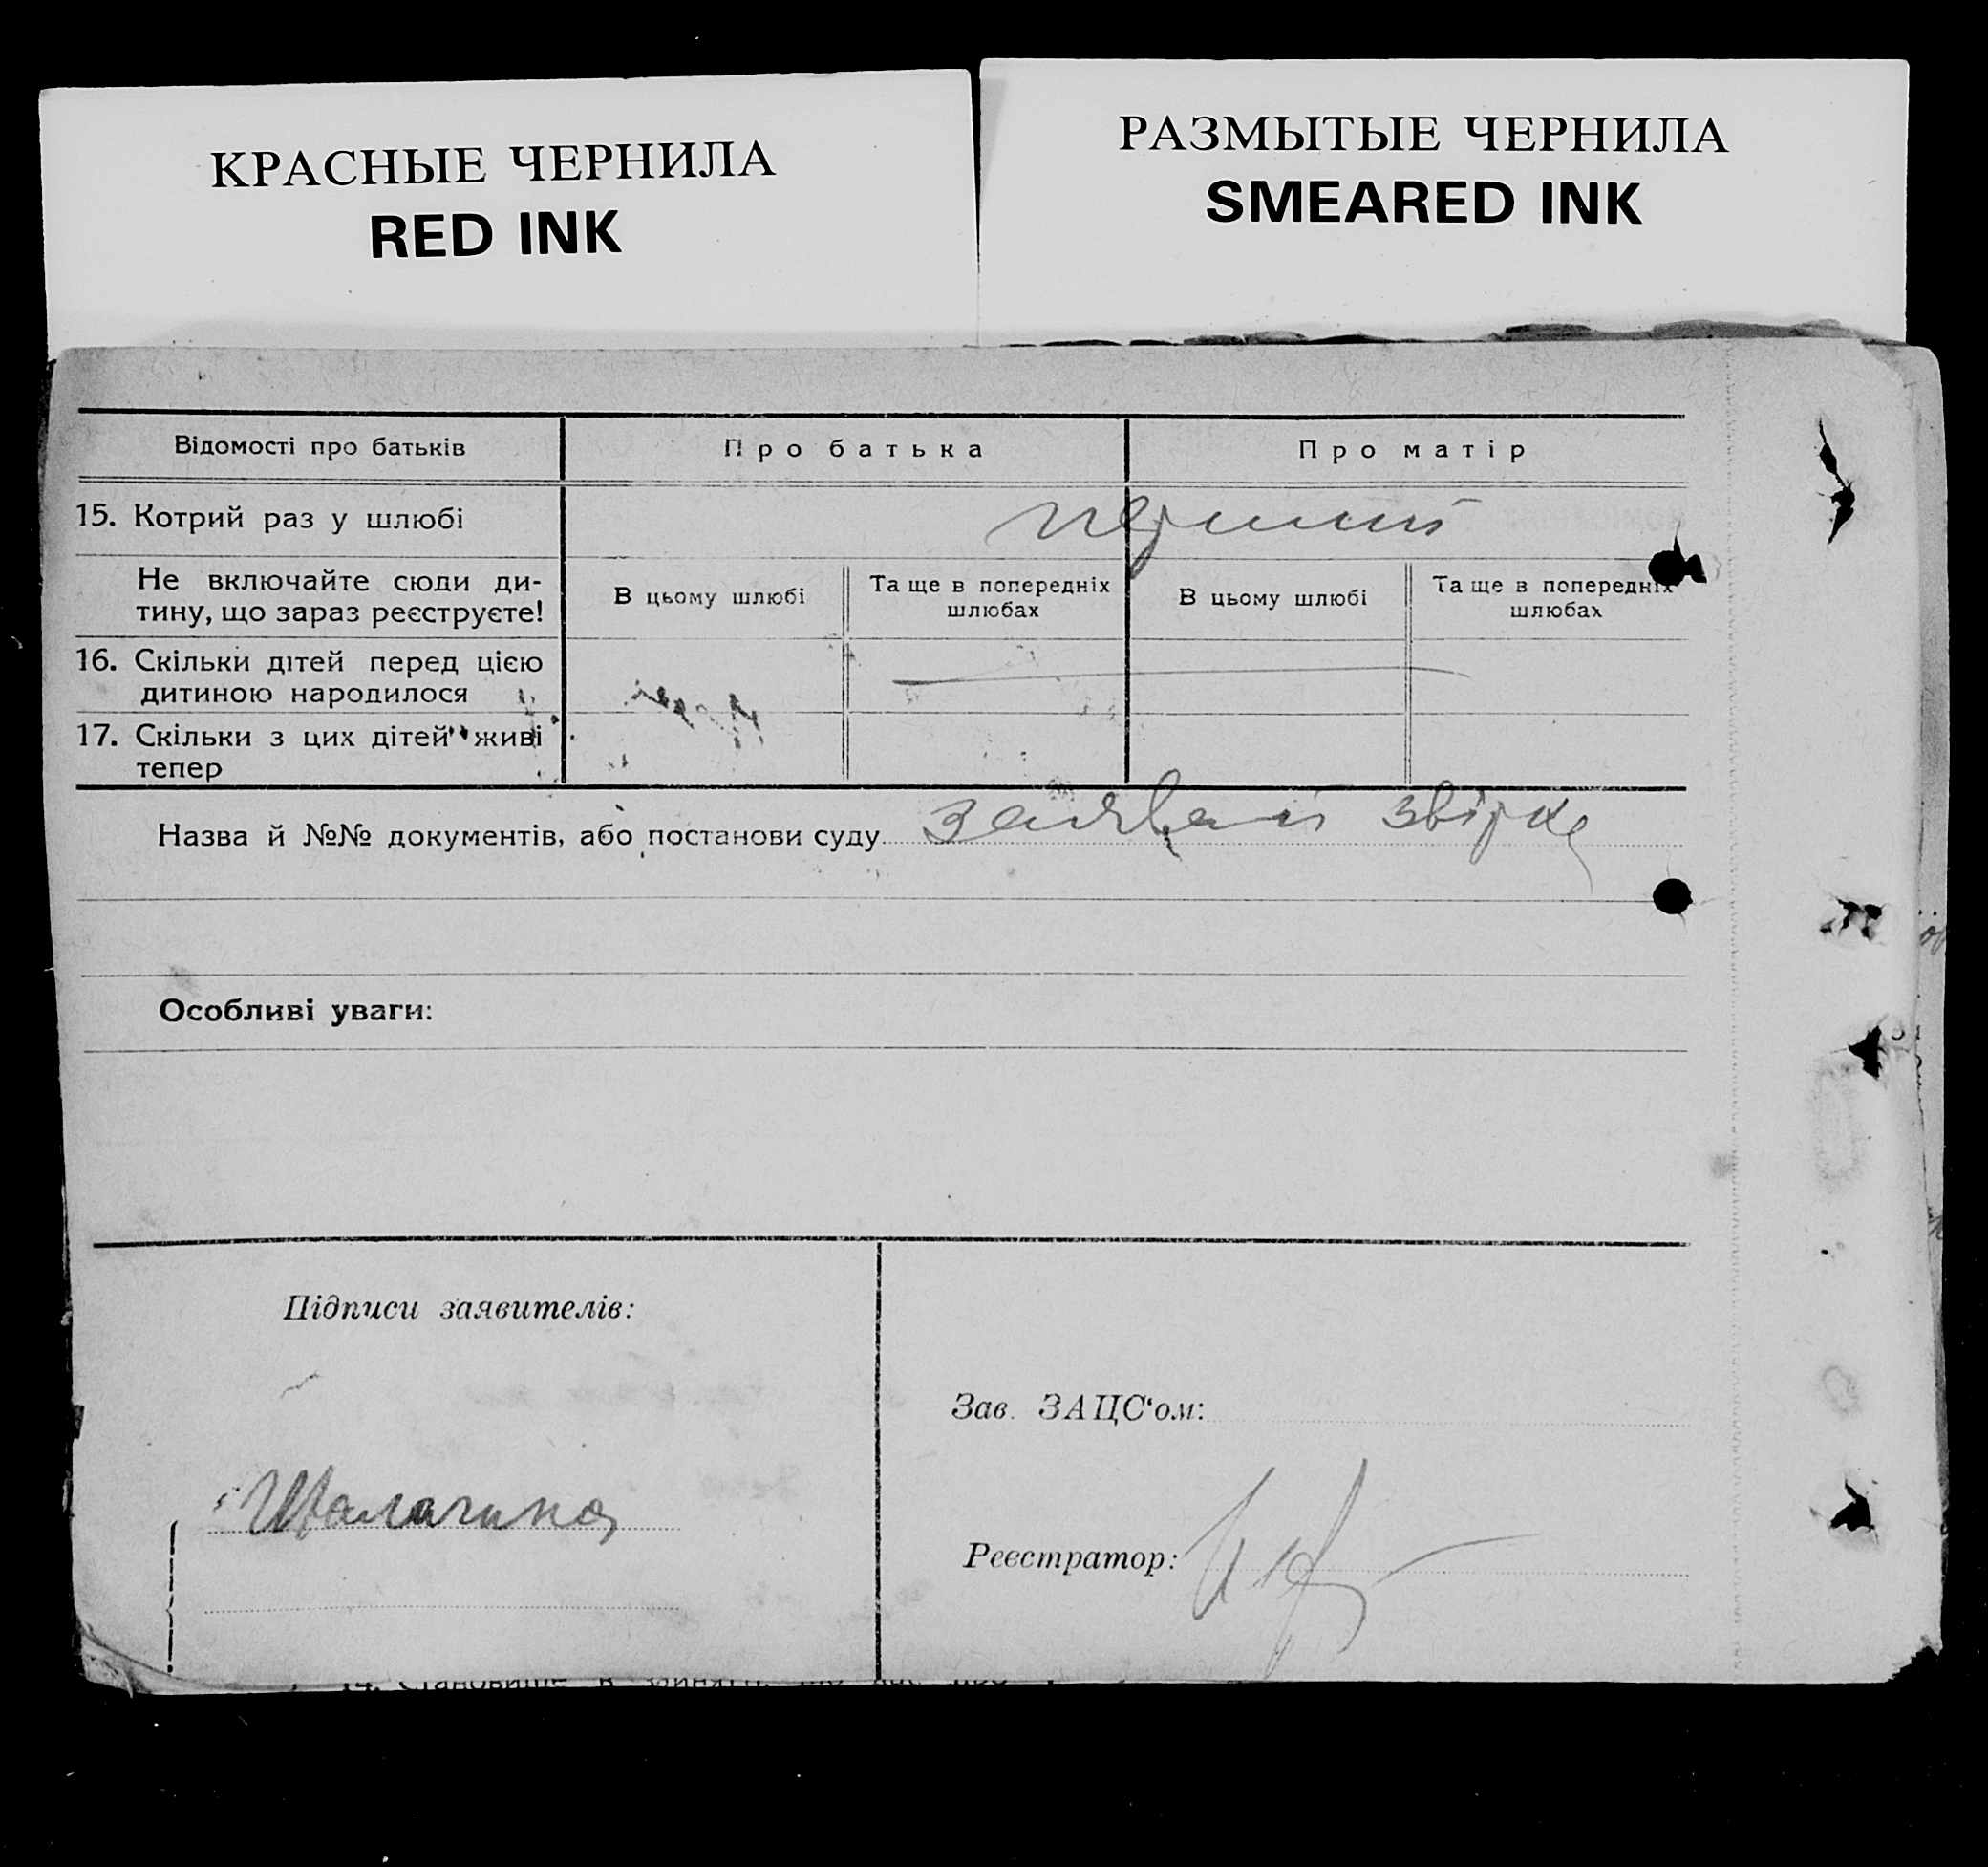 КРАСНЫЕ ЧЕРНИЛА
RED INK
РАЗМЫТЫЕ ЧЕРНИЛА
SMEARED INK
Відомості про батьків
Про батька
Про матір
15. Котрий раз у шлюбі
перший
Не включайте сюди ди-
тину, що зараз реєструєте!
В цьому шлюбі
Та ще в попередніх
шлюбах
В цьому шлюбі
Та ще в попередніх
шлюбах
16. Скільки дітей перед цією
дитиною народилося
17. Скільки з цих дітей живі
тепер
Назва й №№ документів, або постанови суду
Особливі уваги:
Підписи заявителів:
Зав. ЗАЦС'ом:
Реєстратор: